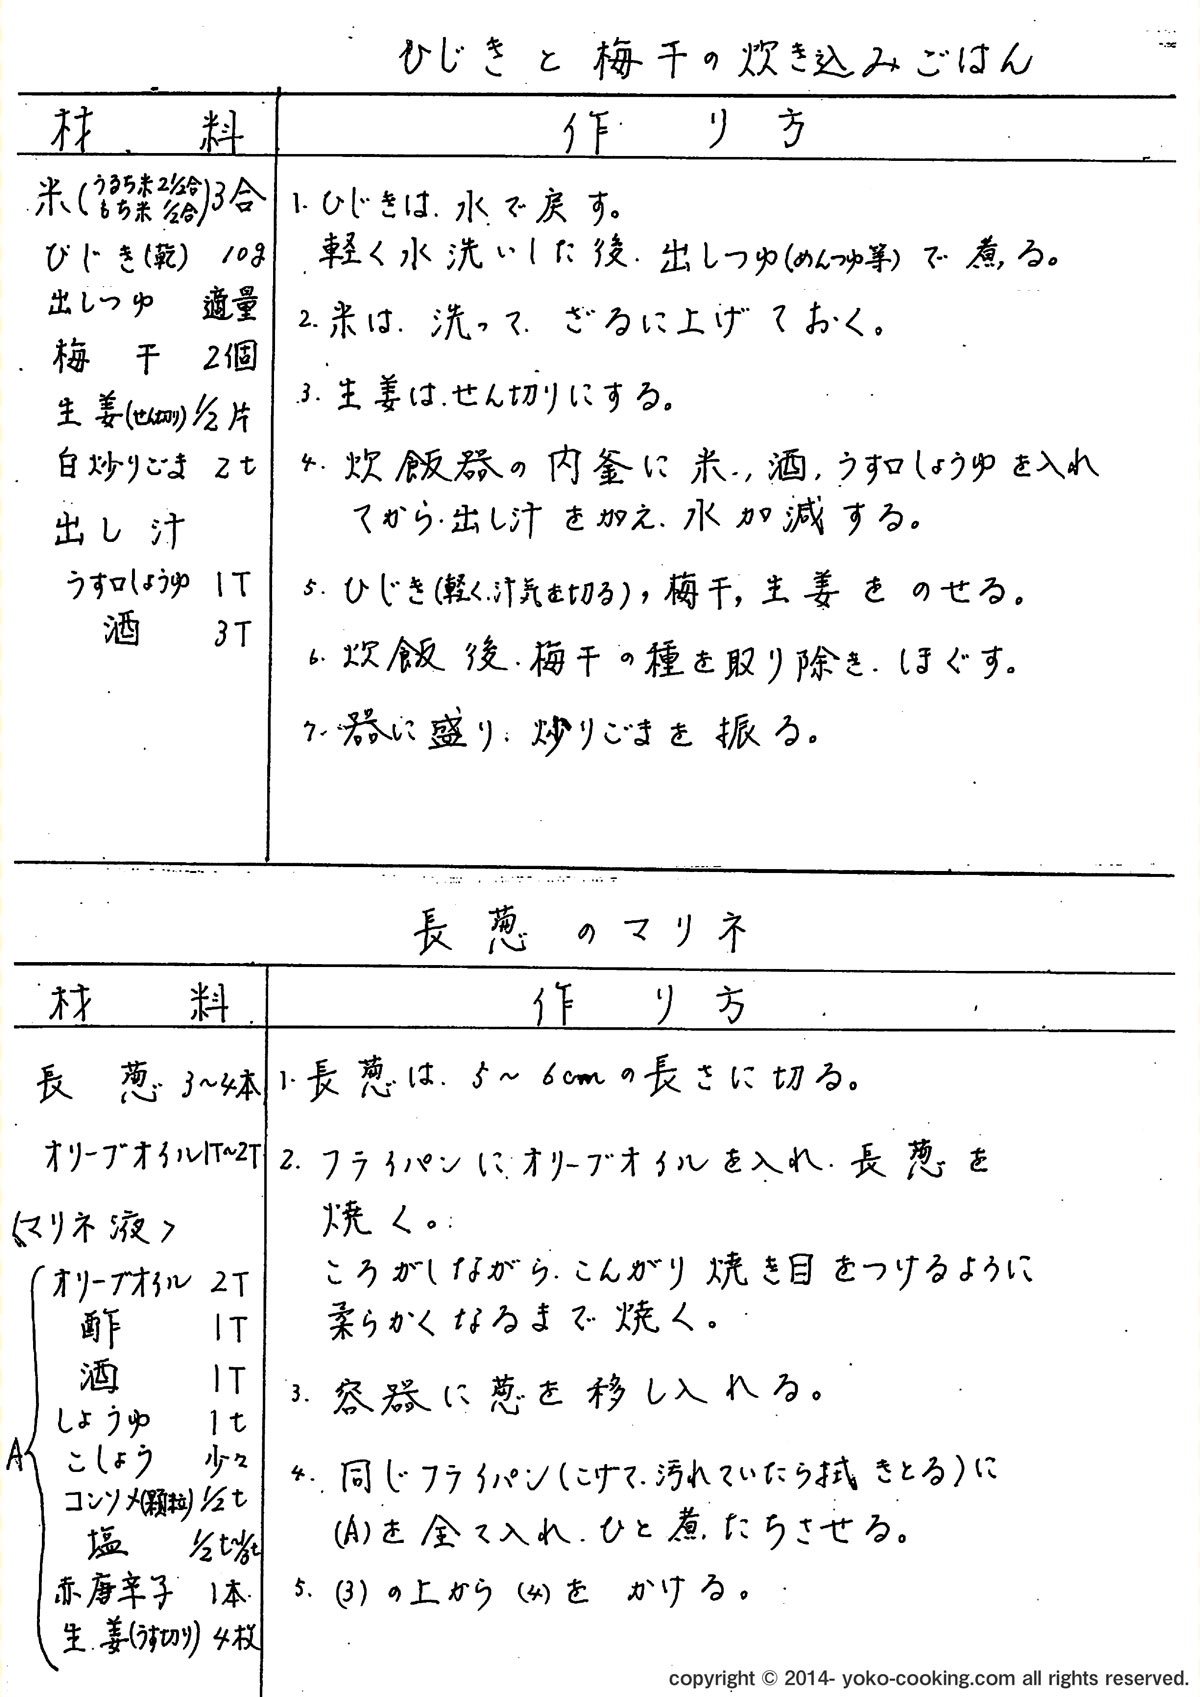 ひじきと梅干の炊き込みごはん
材料
作り方
米(うるち米2 1/2合 もち米 1/2合)3合
ひじき(乾) 10g
出しつゆ 適量
梅干 2個
生姜(せん切り) 1/2片
白炒りごま 2t
出し汁
うす口しょうゆ 1T
酒 3T
1. ひじきは、水で戻す。
軽く水洗いした後、出しつゆ(めんつゆ等)で煮る。
2. 米は、洗って、ざるに上げておく。
3. 生姜は、せん切りにする。
4. 炊飯器の内釜に米、酒、うす口しょうゆを入れ
てから、出し汁を加え、水加減する。
5. ひじき(軽く、汁気を切る)、梅干、生姜をのせる。
6. 炊飯後、梅干の種を取り除き、ほぐす。
7. 器に盛り、炒りごまを振る。
長葱のマリネ
材料
作り方
長葱 3〜4本
オリーブオイル 1T〜2T
〈マリネ液〉
A
オリーブオイル 2T
酢 1T
酒 1T
しょうゆ 1t
こしょう 少々
コンソメ(顆粒) 1/2t
塩 1/2t〜
赤唐辛子 1本
生姜(うす切り) 4枚
1. 長葱は、5〜6cmの長さに切る。
2. フライパンにオリーブオイルを入れ、長葱を
焼く。
ころがしながら、こんがり焼き目をつけるように
柔らかくなるまで焼く。
3. 容器に葱を移し入れる。
4. 同じフライパン(こげて、汚れていたら拭きとる)に
(A)を全て入れ、ひと煮たちさせる。
5. (3)の上から(4)をかける。
copyright © 2014- yoko-cooking.com all rights reserved.